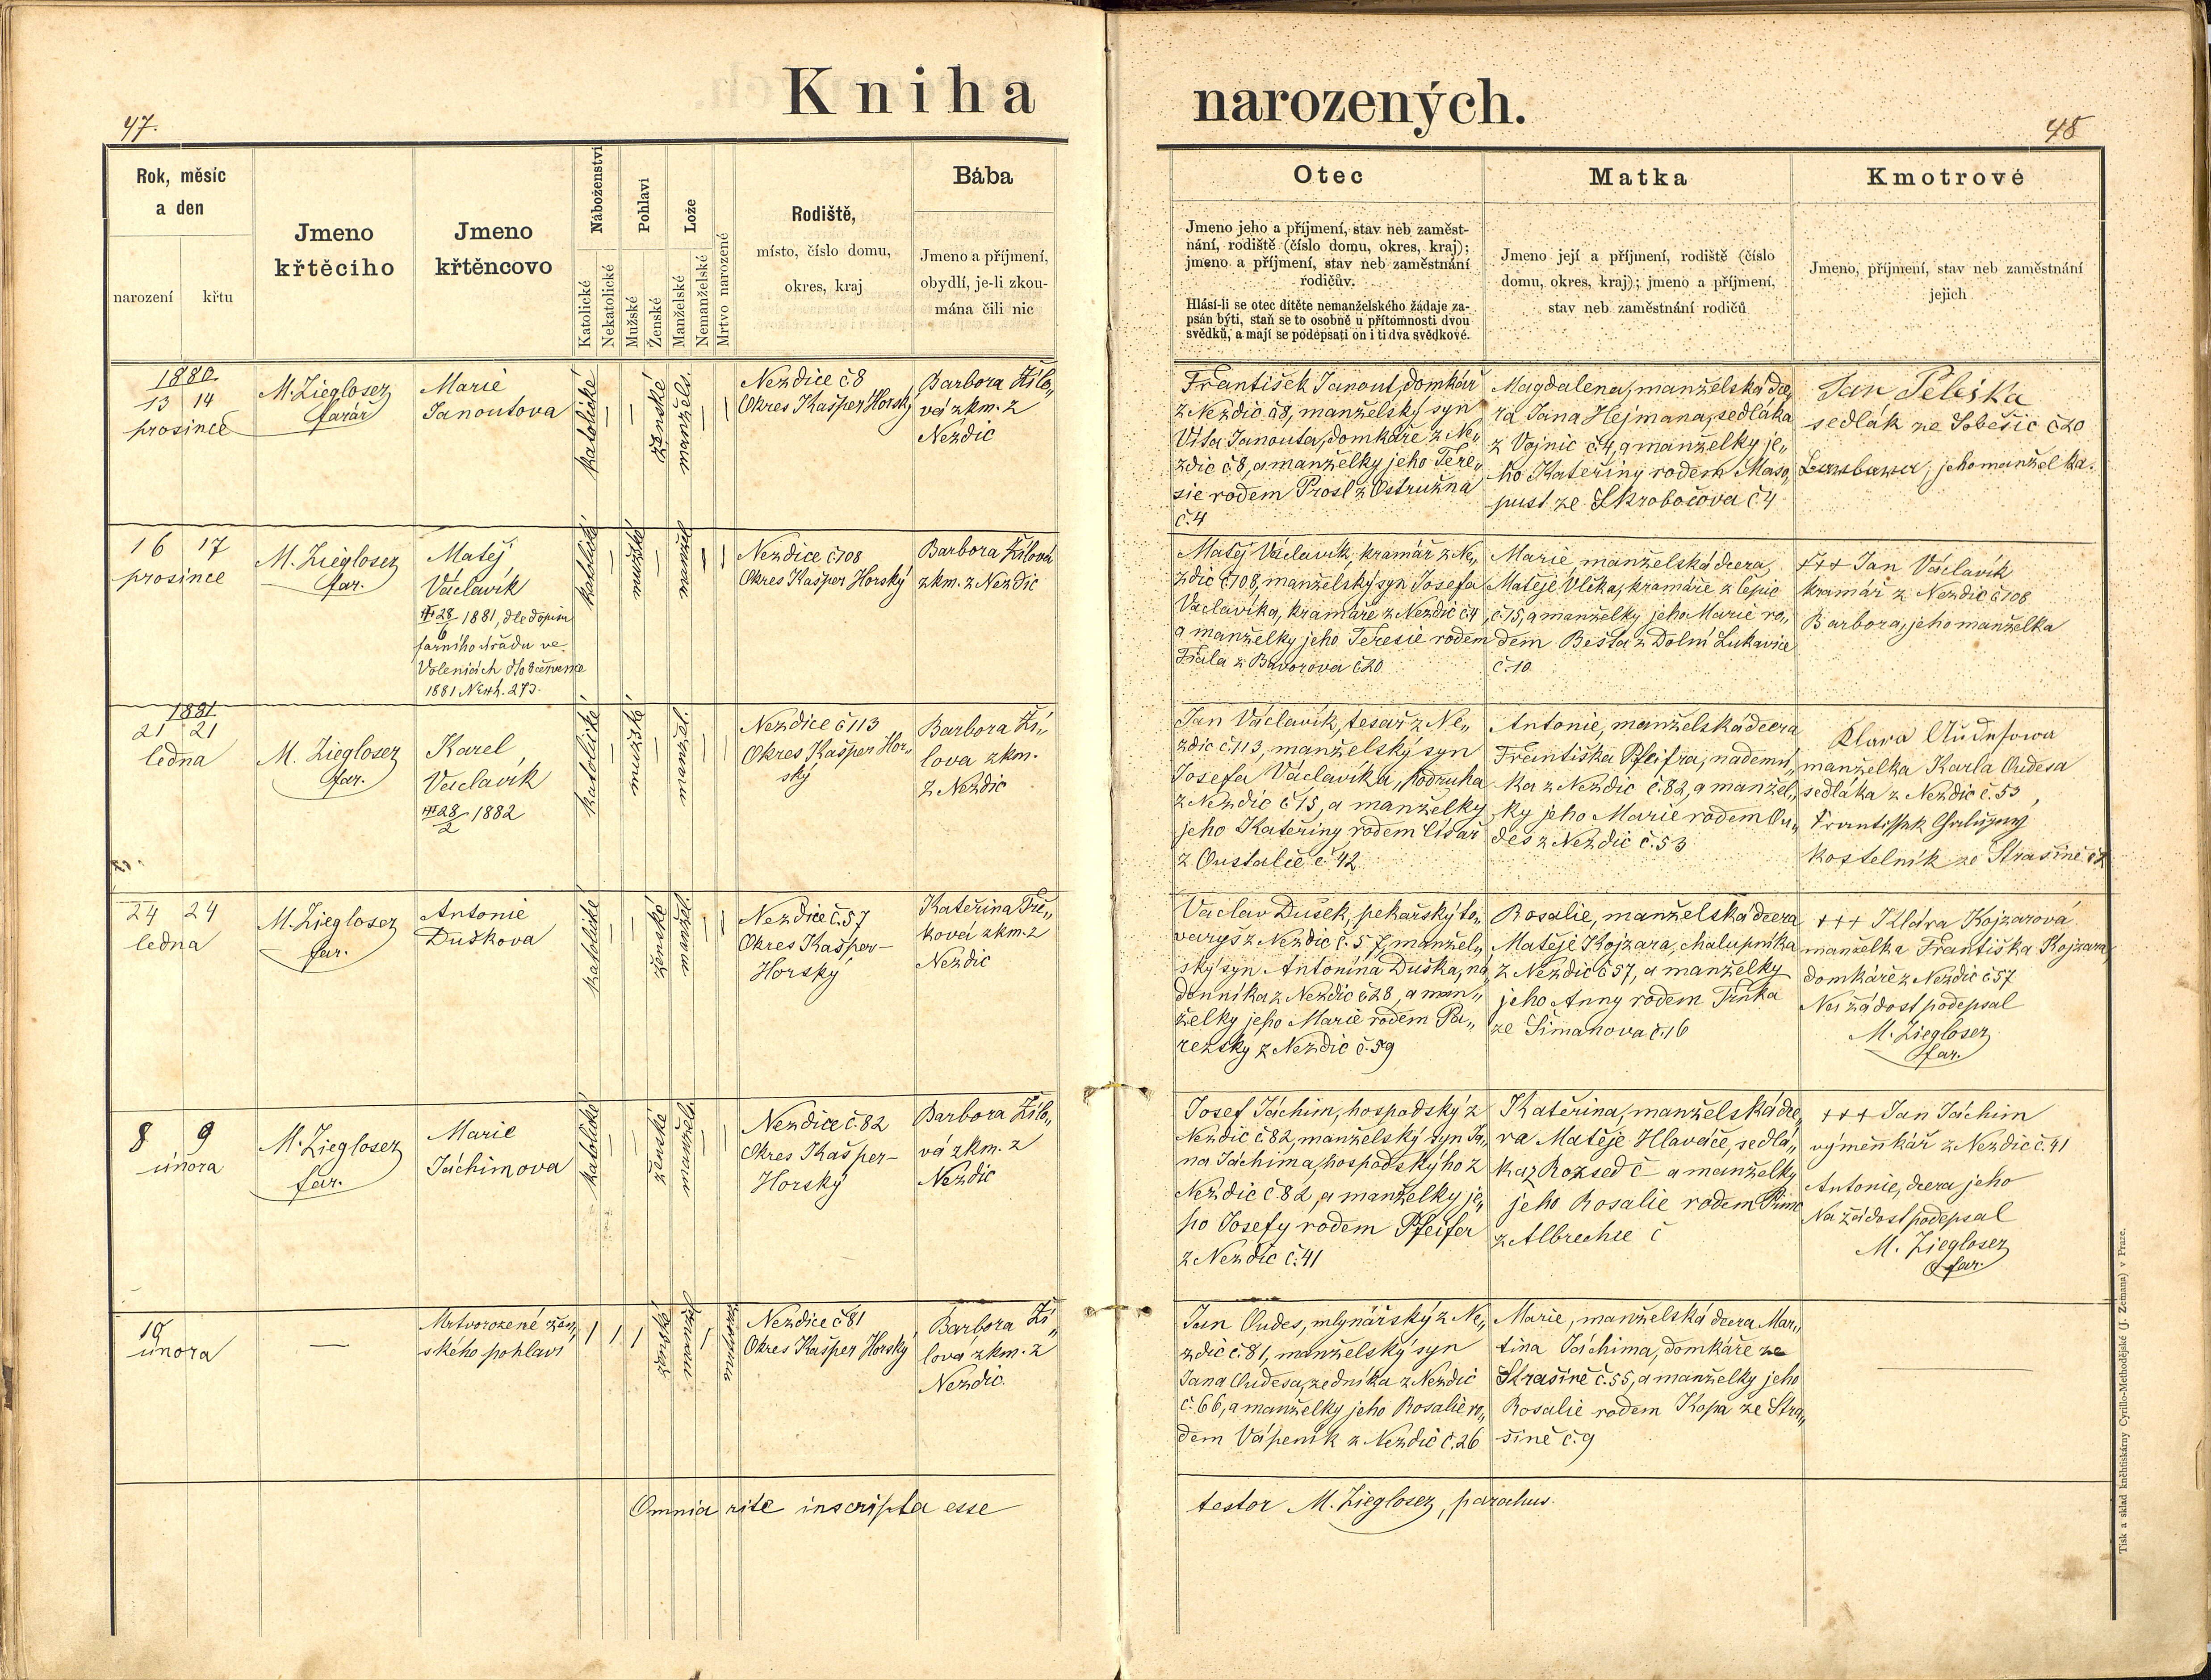 Kniha
narozených.
47.
48
Rok, měsíc
a den
narození
křtu
Jmeno
křtěcího
Jmeno
křtěncovo
Náboženství
Katolické
Nekatolické
Pohlaví
Mužské
Ženské
Lože
Manželské
Nemanželské
Mrtvo narozené
Rodiště,
místo, číslo domu,
okres, kraj
Bába
Jmeno a příjmení,
obydlí, je-li zkou-
mána čili nic
Otec
Jmeno jeho a příjmení, stav neb zaměst-
nání, rodiště (číslo domu, okres, kraj);
jmeno a příjmení, stav neb zaměstnání
rodičův.
Hlásí-li se otec dítěte nemanželského žádaje za-
psán býti, staň se to osobně u přítomnosti dvou
svědků, a mají se podepsati on i ti dva svědkové.
Matka
Jmeno její a příjmení, rodiště (číslo
domu, okres, kraj); jmeno a příjmení,
stav neb zaměstnání rodičů
Kmotrové
Jmeno, příjmení, stav neb zaměstnání
jejich
1880
13 14
prosince
M. Ziegloser
farář
Marie
Janoutova
katolické
ženské
manžels.
Nezdice č 8
Okres Kašper Horský
Barbora Žílo„
vá zkm. z
Nezdic
František Janout, domkář
z Nezdic č 8, manželský syn
Víta Janouta, domkáře z Ne„
zdic č 8, a manželky jeho Tere„
sie rodem Prosl z Ostružna
č. 4
Magdalena, manželská dce„
ra Jana Hejmana, sedláka
z Vojnic č 4, a manželky je„
ho Kateřiny rodem Maso„
pust ze Skrobočova č 4
Jan
sedlák ze Soběšic č 20
jeho manželka.
16 17
prosince
M. Ziegloser
far.
Matěj
Václavík
1881, dle dopisu
farního úřadu ve
Volenicích
1881 275.
katolické
mužské
manžel
Nezdice č 108
Okres Kašper Horský
Barbora Žílová
zkm. z Nezdic
Matěj Václavík, kramář z Ne„
zdic č 108, manželský syn Josefa
Václavíka, kramáře z Nezdic č 4
a manželky jeho Teresie rodem
Fiala z Bavorova č 20
Marie, manželská dcera,
Matěje Vlka, kramáře z Čepic
č. 15, a manželky jeho Marie ro„
dem Bešta z Dolní Lukavice
č. 10
+++ Jan Václavík
kramář z Nezdic č 108
Barbora, jeho manželka
1881
21 21
ledna
M. Ziegloser
far.
Karel
Václavík
28/2 1882
katolické
mužské
manžel.
Nezdice č 113
Okres Kašper Hor„
ský
Barbora Ží„
lova zkm.
z Nezdic
Jan Václavík, tesař z Ne„
zdic č 113, manželský syn
Josefa Václavíka, podruha
z Nezdic č 15, a manželky
jeho Kateřiny rodem Císař
z Oustalče č 42
Antonie, manželská dcera
Františka Pfeifra, nádenní„
ka z Nezdic č. 82, a manžel„
ky jeho Marie rodem Ou„
des z Nezdic č. 53
Klara
manželka Karla Oudesa
sedláka z Nezdic č. 53,
Frantissek Chalupný
kostelník ze Strašině
24 24
ledna
M. Ziegloser
far.
Antonie
Duškova
katolické
ženské
manžel.
Nezdice č. 57
Okres Kašper-
Horský
Kateřina Trč„
ková zkm. z
Nezdic
Václav Dušek, pekařský to„
varyš z Nezdic č. 57, manžel„
ský syn Antonína Duška, ná„
denníka z Nezdic č 28, a man„
želky jeho Marie rodem Pa„
režsky z Nezdic č. 59
Rosalie, manželská dcera
Matěje Kojzara, chalupníka
z Nezdic č 57, a manželky
jeho Anny rodem Trnka
ze Šimanova č. 16
+++ Klára Kojzarová
manželka Františka Kojzara,
domkáře z Nezdic č 57
Na žádost podepsal
M. Ziegloser
far.
8 9
února
M. Ziegloser
far.
Marie
Jáchimova
katolické
ženské
manžels.
Nezdice č. 82
Okres Kašper-
Horský
Barbora Žílo„
vá zkm. z
Nezdic
Josef Jáchim, hospodský z
Nezdic č 82, manželský syn Ja„
na Jáchima, hospodskýho z
Nezdic č 82, a manželky je„
ho Josefy rodem Pfeifer
z Nezdic č. 41
Kateřina, manželská dce„
ra Matěje Hlaváče, sedlá„
ka z Rozsed č a manželky
jeho Rosalie rodem
z Albrechce č
+++ Jan Jáchim
výměnkář z Nezdic č. 41
Antonie, dcera jeho
Na žádost podepsal
M. Ziegloser
far.
19
února
—
Mrtvorozené žen„
ského pohlaví
ženské
Nezdice č 81
Okres Kašper Horský
Barbora Ží„
lová zkm. z
Nezdic.
Jan Oudes, mlynářský z Ne„
zdic č. 81, manželský syn
Jana Oudesa, zedníka z Nezdic
č. 66, a manželky jeho Rosalie ro„
dem Vápeník z Nezdic č. 26
Marie, manželská dcera Mar„
tina Jáchima, domkáře ze
Strašině č. 55, a manželky jeho
Rosalie rodem Kopa ze Stra„
šině č. 9
Omnia rite inscripta esse
testor M. Ziegloser, parochus.
Tisk a sklad kněhtiskárny Cyrillo-Methodějské (J. Zeman) v Praze.